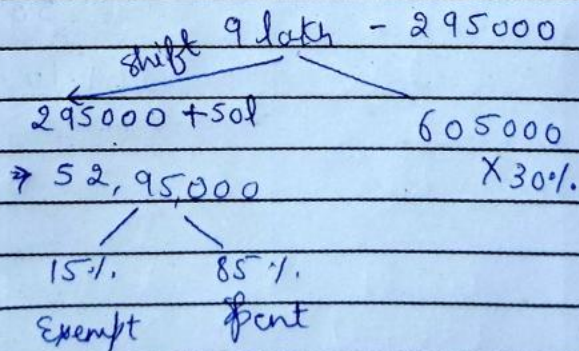 9 lakh - 295000
shift
295000 + 50l
605000
⇒ 52,95,000
X 30%.
15%. 85%.
Exempt Spent